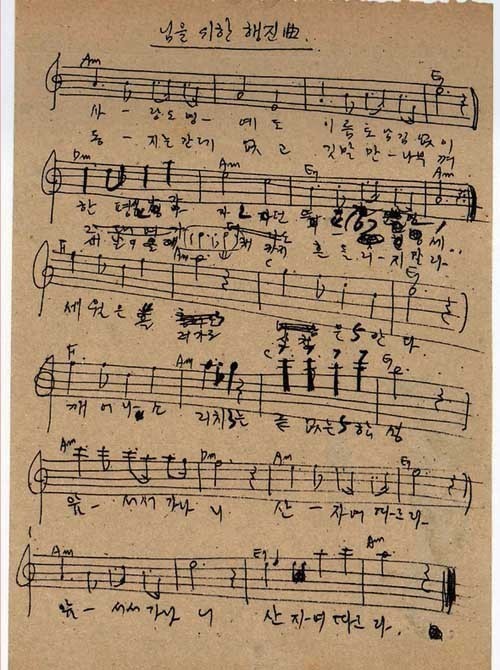 님을 위한 행진曲.
Am E7
사 - 랑도 명 - 예도 이름도 남김 없이
동 - 지는 간데 없고 깃발만 - 나부껴
Dm Am E7 Am
한 평생
새 날이 올 때 까지 흔들리 - 지 말라
F Am C G
세월은 은 안다
F Am C G
깨어나 소리치는 끝없는 함성
Am Dm Am E7
앞 - 서서 가나니 산 - 자여 따르라
Am E7 Am
앞 - 서서 가나니 산자여 따르라.